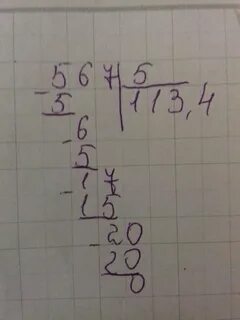 567 5
-5 113,4
-6
5
-17
15
-20
20
0